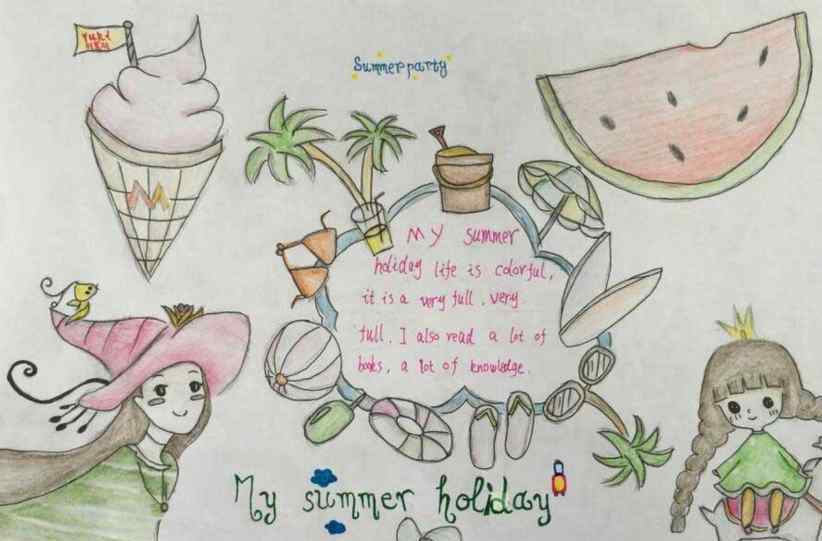 Summer party
M
MY summer
holiday life is colorful,
it is a very full, very
full. I also read a lot of
books, a lot of knowledge.
My summer holiday